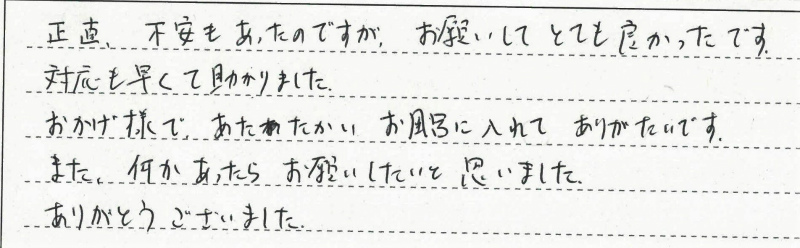 正直、不安もあったのですが、お願いしてとても良かったです。
対応も早くて助かりました。
おかげ様で、あたたかいお風呂に入れてありがたいです。
また、何かあったらお願いしたいと思いました。
ありがとうございました。